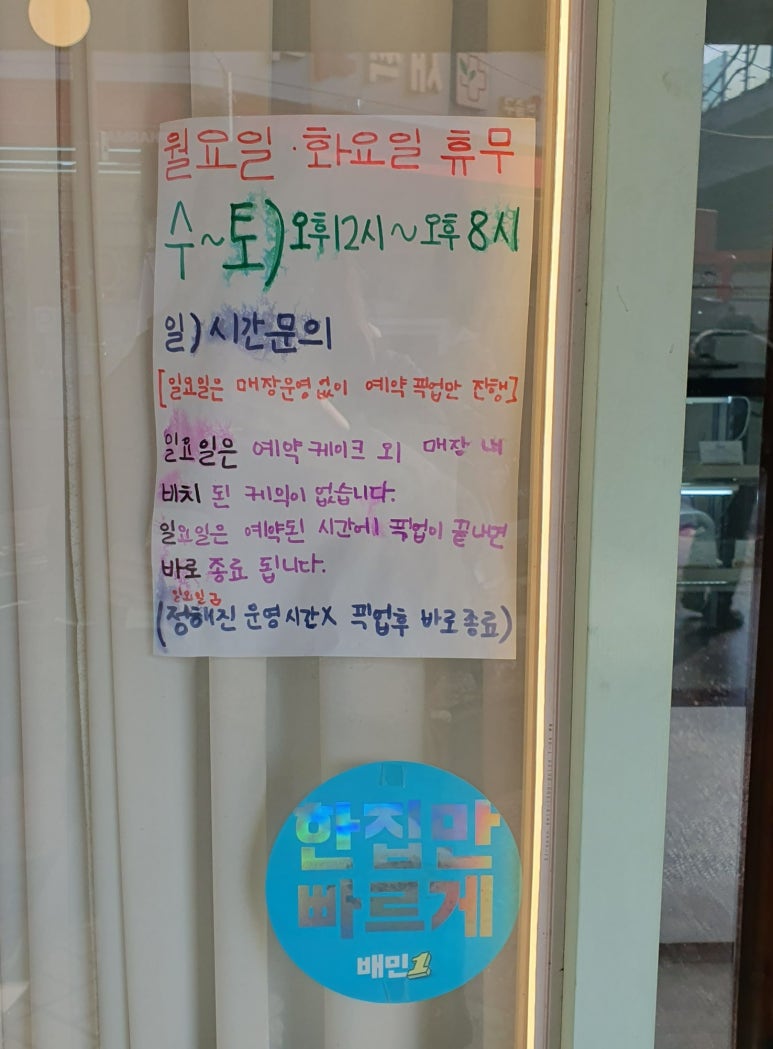 월요일·화요일 휴무
수~토) 오후12시~오후 8시
일) 시간문의
[일요일은 매장운영없이 예약 픽업만 진행]
일요일은 예약 케이크 외 매장 내
비치 된 케익이 없습니다.
일요일은 예약된 시간에 픽업이 끝나면
바로 종료 됩니다.
일요일은
(정해진 운영시간X 픽업후 바로종료)
한집만
빠르게
배민1